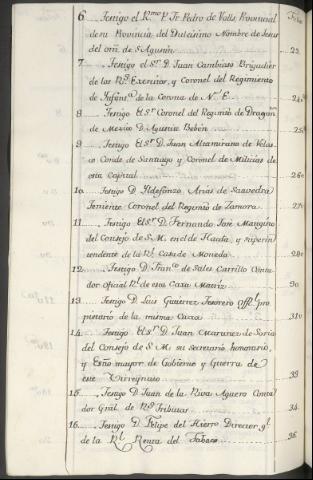 folio
6 Testigo el Rmo P. Fr. Pedro de Valls, Provincial
de su Provincia del Dulcisimo Nombre de Jesus
del orn. de Sn Agustin 23.
7 Testigo el Sr. D. Juan Cambiaso Brigadier
de los Rs. Exercitos, y Coronel del Regimiento
de Infanta. de la Corona de N. E. 24
8 Testigo El Sr Coronel del Regimto de Dragons
de Mexico D. Agustin Beben 25
9 Testigo El Sr D. Juan Altamirano de Velas-
co Conde de Santiago y Coronel de Milicias de
esta Capital 26
10 Testigo D. Ildefonzo Arias de Saavedra
Teniente Coronel del Regimto de Zamora 27
11 Testigo El Sr. D. Fernando José Mangino
del Consejo de S. M. en el de Hacda, y superin-
tendente de la Rl Casa de Moneda 28
12 Testigo D. Franco de Sales Carrillo Conta-
dor Oficial Rl de esta Caxa Matriz 30
13 Testigo D. Luis Gutierrez Tesorero Offl pro
pietario de la misma Caxa 31
14 Testigo El Sr D. Juan Martinez de Soria
del Consejo de S. M. su secretario honorario,
y Esño mayor de Gobierno y Guerra de
este Virreynato 33
15 Testigo D. Juan de la Riva Aguero Conta
dor Gral de Rs Tributos 34.
16 Testigo D. Felipe del Hierro Director gl
de la Rl Renta del Tabaco 36